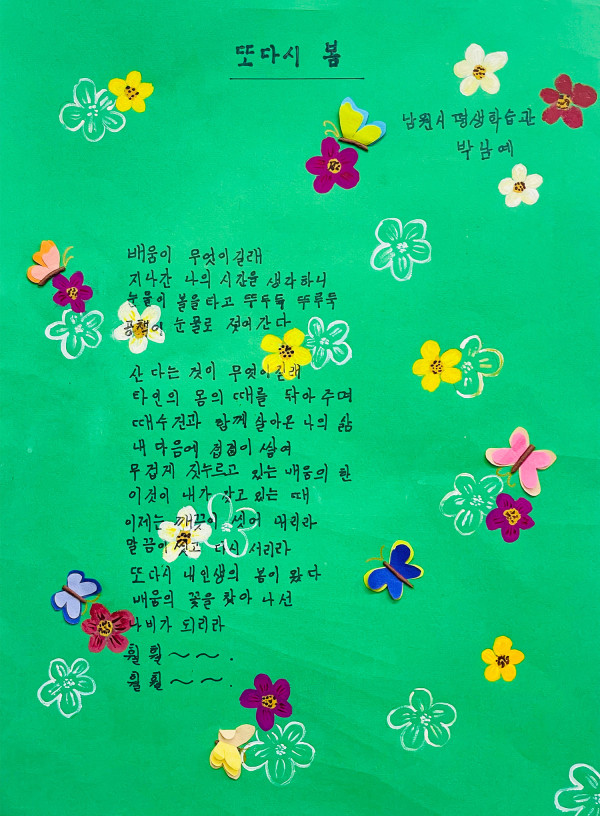 또다시 봄
남원시 평생학습관
박남예
배움이 무엇이길래
지나간 나의 시간을 생각하니
눈물이 볼을 타고 뚜두둑 뚜루둑
공책이 눈물로 젖어간다
산다는 것이 무엇이길래
타인의 몸의 때를 닦아주며
때수건과 함께 살아온 나의 삶
내 마음에 겹겹이 쌓여
무겁게 짓누르고 있는 배움의 한
이것이 내가 안고 있는 때
이제는 깨끗이 씻어 내리라
말끔이 씻고 다시 서리라
또다시 내인생의 봄이 왔다
배움의 꽃을 찾아 나선
나비가 되리라
훨 훨 ~~.
훨 훨 ~~.